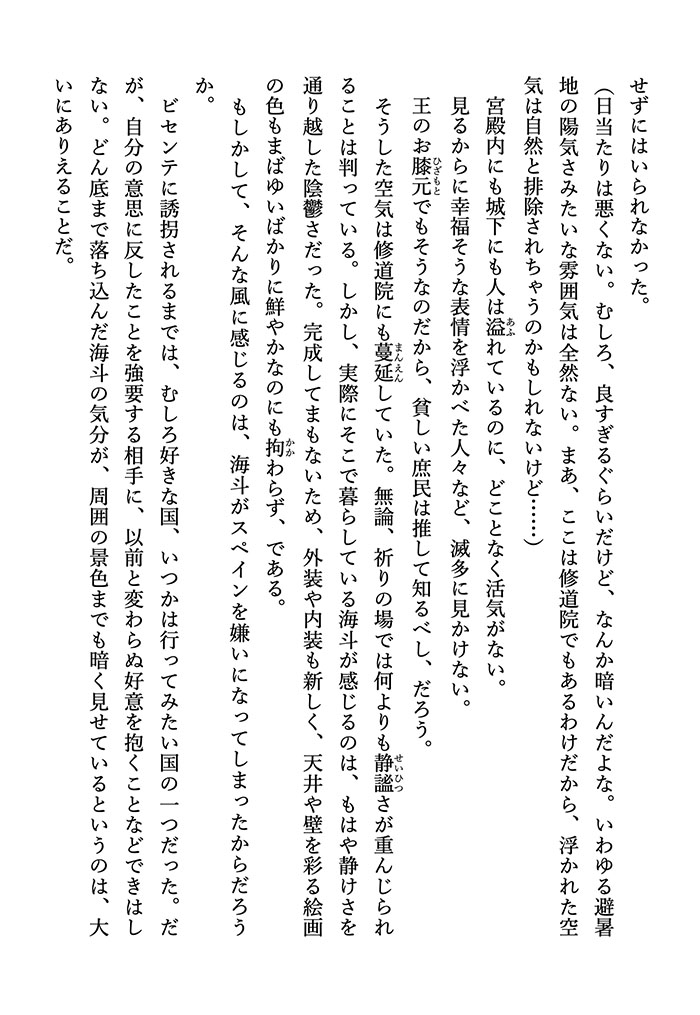 せずにはいられなかった。
（日当たりは悪くない。むしろ、良すぎるぐらいだけど、なんか暗いんだよな。いわゆる避暑
地の陽気さみたいな雰囲気は全然ない。まあ、ここは修道院でもあるわけだから、浮かれた空
気は自然と排除されちゃうのかもしれないけど……）
宮殿内にも城下にも人は溢れているのに、どことなく活気がない。
見るからに幸福そうな表情を浮かべた人々など、滅多に見かけない。
王のお膝元でもそうなのだから、貧しい庶民は推して知るべし、だろう。
そうした空気は修道院にも蔓延していた。無論、祈りの場では何よりも静謐さが重んじられ
ることは判っている。しかし、実際にそこで暮らしている海斗が感じるのは、もはや静けさを
通り越した陰鬱さだった。完成してまもないため、外装や内装も新しく、天井や壁を彩る絵画
の色もまばゆいばかりに鮮やかなのにも拘わらず、である。
もしかして、そんな風に感じるのは、海斗がスペインを嫌いになってしまったからだろう
か。
ビセンテに誘拐されるまでは、むしろ好きな国、いつかは行ってみたい国の一つだった。だ
が、自分の意思に反したことを強要する相手に、以前と変わらぬ好意を抱くことなどできはし
ない。どん底まで落ち込んだ海斗の気分が、周囲の景色までも暗く見せているというのは、大
いにありえることだ。